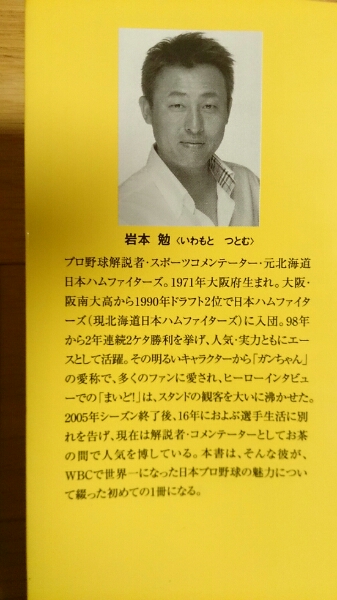 岩本 勉〈いわもと つとむ〉
プロ野球解説者・スポーツコメンテーター・元北海道
日本ハムファイターズ。1971年大阪府生まれ。大阪・
阪南大高から1990年ドラフト2位で日本ハムファイタ
ーズ(現北海道日本ハムファイターズ)に入団。98年
から2年連続2ケタ勝利を挙げ、人気・実力ともにエー
スとして活躍。その明るいキャラクターから「ガンちゃん」
の愛称で、多くのファンに愛され、ヒーローインタビュ
ーでの「まいど!」は、スタンドの観客を大いに沸かせた。
2005年シーズン終了後、16年におよぶ選手生活に別
れを告げ、現在は解説者・コメンテーターとしてお茶
の間で人気を博している。本書は、そんな彼が、
WBCで世界一になった日本プロ野球の魅力につい
て綴った初めての1冊になる。